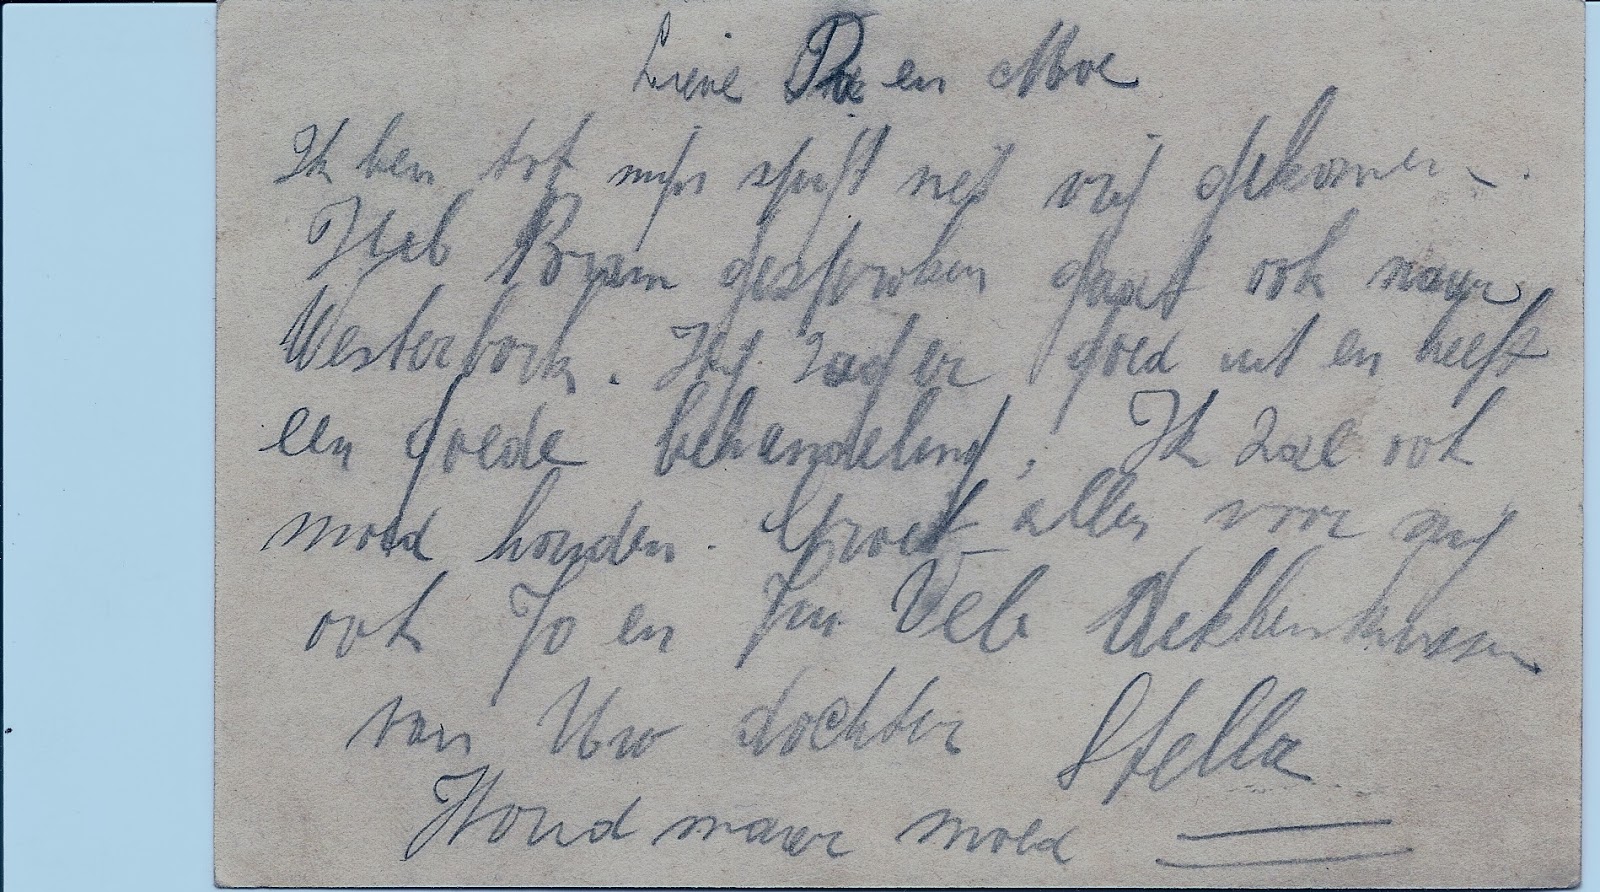 Lieve Pa en Moe
Ik ben tot mijn spijt niet vrij gekomen.
Heb Bram gesproken gaat ook naar
Westerbork. Hij zag er goed uit en heeft
een goede behandeling. Ik zal ook
moed houden. Groet allen voor mij
ook Jo en Veel kussen
van Uw dochter Stella
Houd maar moed